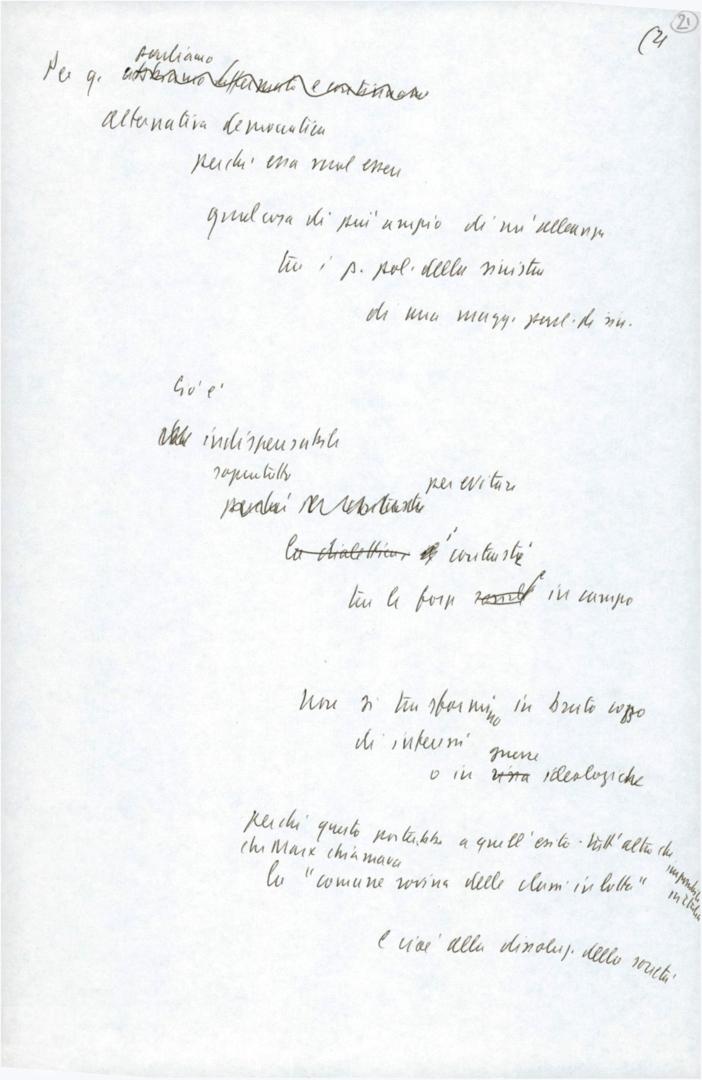 21
(21
parliamo
Per q.
alternativa democratica
perché essa vuol essere
qualcosa di più ampio di un'alleanza
tra i p. pol. della sinistra
di una magg. parl. di sin.
Ciò è
indispensabile
soprattutto
perché per evitare
la dialettica i contrasti
tra le forze in campo
non si trasformino in bruto cozzo
di interessi
guerre
o in ideologiche
perché questo porterebbe a quell'esito - tutt'altro che
impossibile
in Italia
che Marx chiamava
la "comune rovina delle classi in lotta"
e cioè alla dissoluz. della società